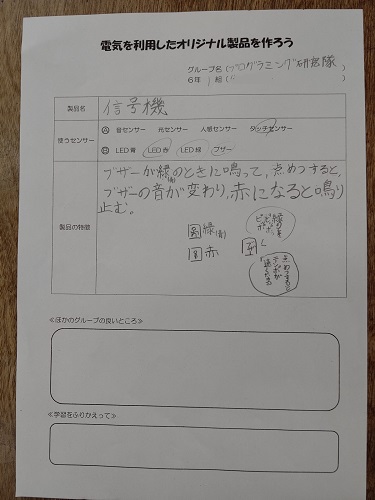 電気を利用したオリジナル製品を作ろう
グループ名(プログラミング研究隊
6年 1 組(
製品名 信号機
使うセンサー Ⓐ 音センサー 光センサー 人感センサー タッチセンサー
Ⓑ LED青 LED赤 LED緑 ブザー
製品の特徴
ブザーが緑(青)のときに鳴って,点めつすると,
ブザーの音が変わり,赤になると鳴り
止む。
緑(青)
赤
≪ほかのグループの良いところ≫
≪学習をふりかえって≫